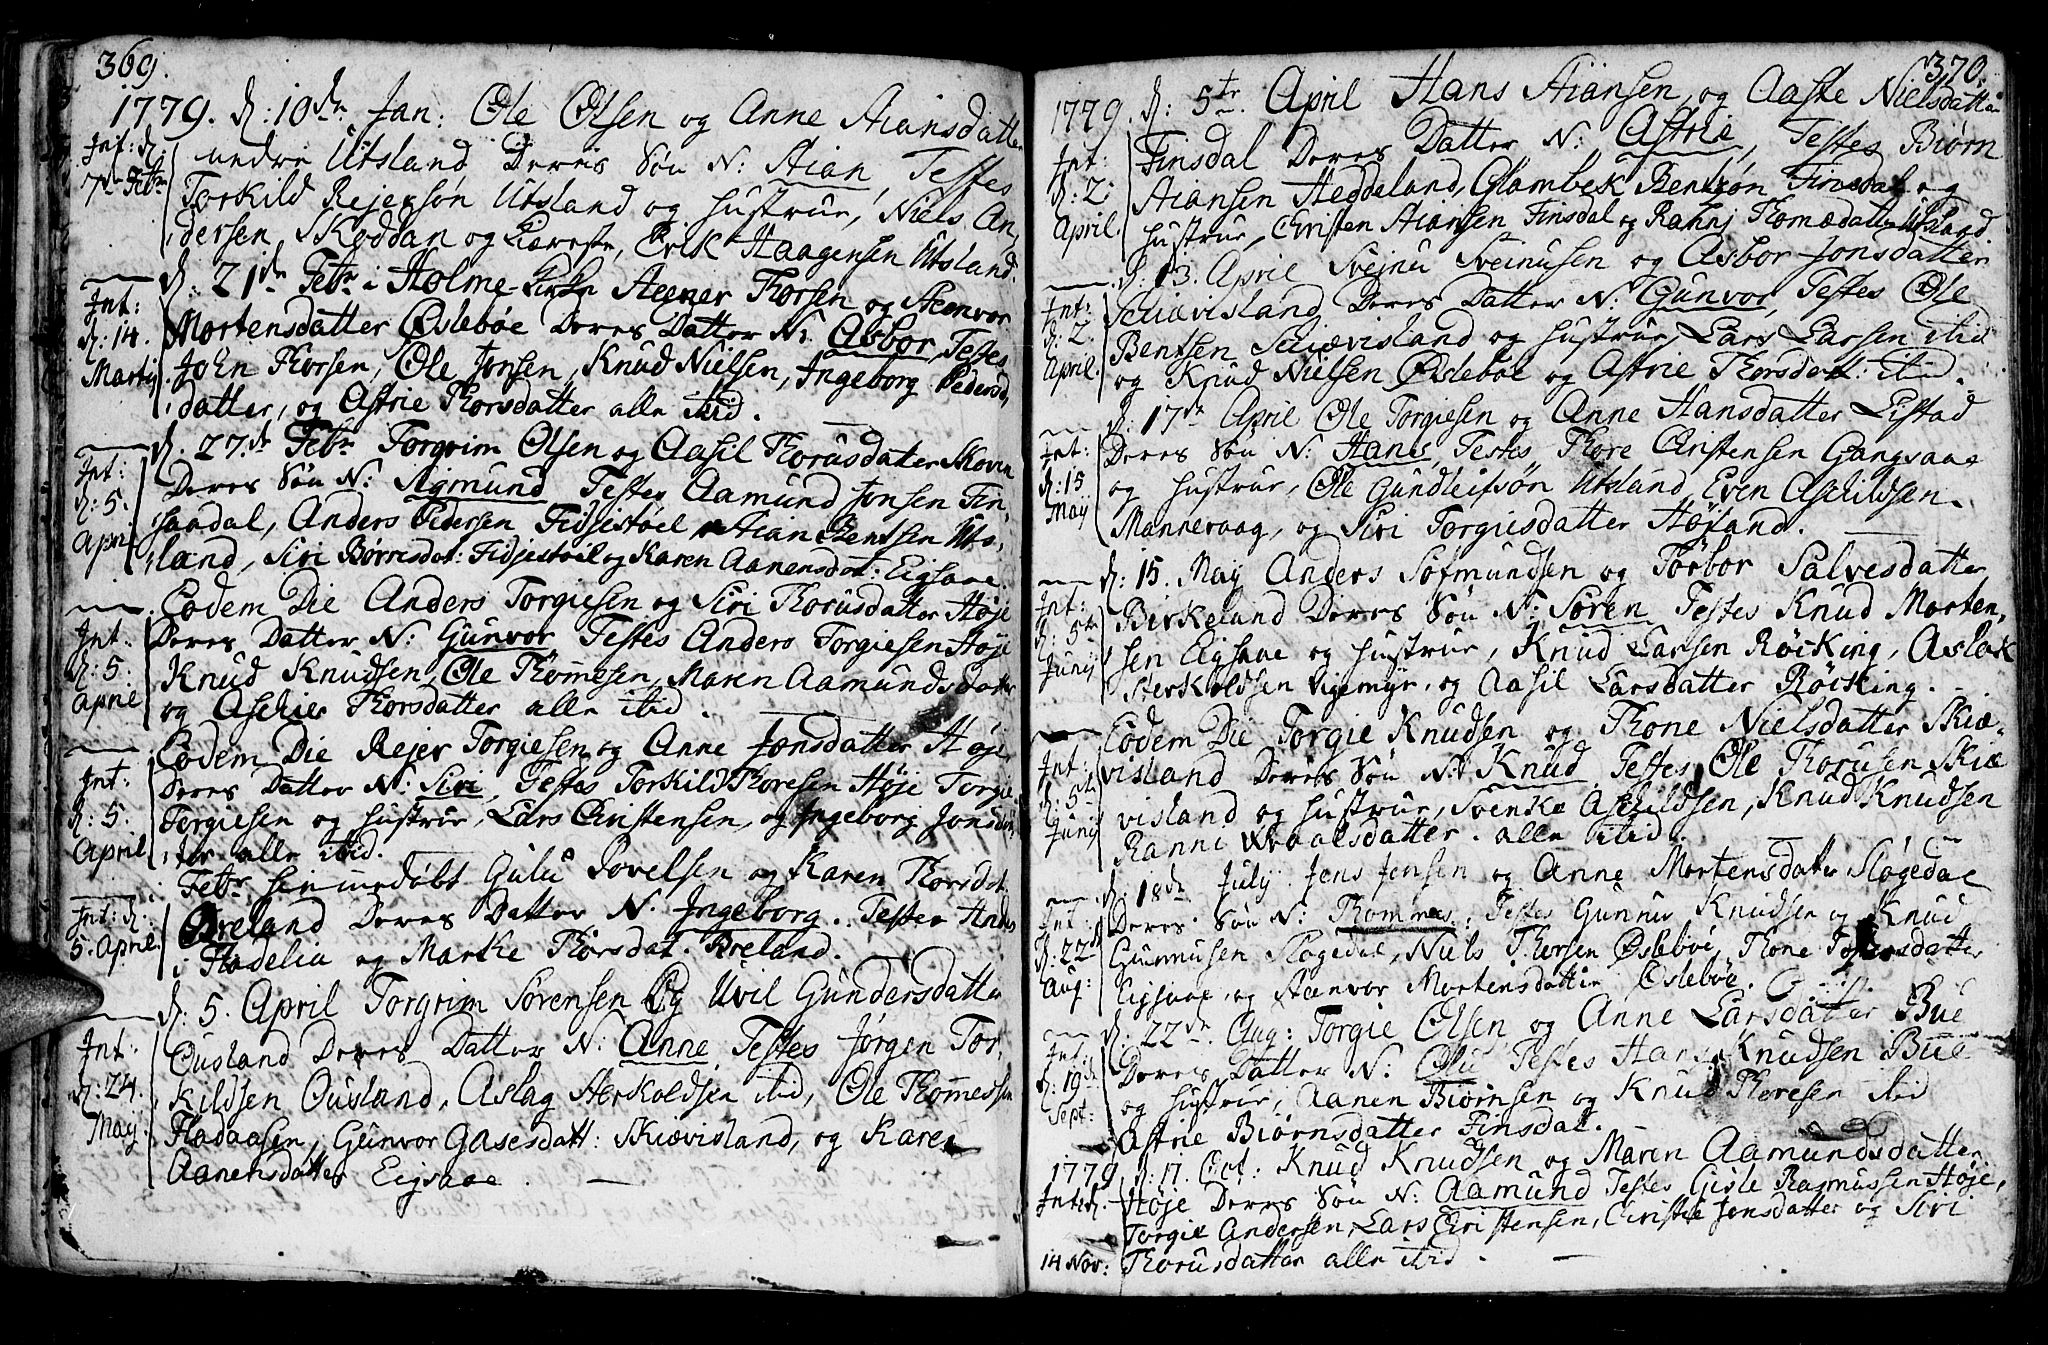 369.
1779. d: 10de Jan: Ole Olsen og Anne Aiansdatter
Int: d: 7de Febr nedre Utsland Deres Søn N: Aian, Testes
Torkild Rejersøn Utsland og Hustrue, Niels An,
dersen Skoddan og Kiæreste, Erik Haagensen Utsland.
d. 21de Febr i Holme-Kirke Steener Thorsen og Steenvor
Int: d: 14. Martij. Mortensdatter Øslebøe Deres Datter N: Asbor, Testes
John Thorsen, Ole Jonsen, Knud Nielsen, Ingeborg Peders
datter, og Astrie Thorsdatter alle ibid.
d. 27de Febr Torgrim Olsen og Aasil Thorusdatter Skoven
Int: d: 5. April Deres Søn N: Sigmund Testes Aamund Jonsen Fin,
sandal, Anders Pedersen Fidjestøel, Aian Bentsen Uts,
land, Siri Børresdat: Fidjestøil og Karen Aanensdat: Eigsaae
Eodem Die Anders Torgiesen og Siri Thorusdatter Høje
Int: d: 5. April Deres Datter N: Gunvor Testes Anders Torgiesen Høje
Knud Knudsen, Ole Thomesen, Maren Aamundsdatter
og Aschier Thorsdatter alle ibid.
Eodem Die Rejer Torgiesen og Anne Jonsdatter Høje
Int: d: 5. April Deres Datter N: Siri, Testes Torkild Thoresen Høje Torgie
Torgiesen og Hustrue, Lars Christensen, og Ingeborg Jonsdat,
ter alle ibid.
Febr hjemmedøbt Gulu Tovelsen og Karen Thorsdat:
Int: d: 5. April. Øreland Deres Datter N. Ingeborg. Testes Anders
i Stadelia og Marthe Thorsdat. Øreland.
d. 5. April Torgrim Sørensen Og Uvil Gundersdatter
Int: d: 24. Maij. Ousland Deres Datter N: Anne, Testes Jørgen Tor,
kildsen Ousland, Aslag Sterkoldsen ibid, Ole Thommessen
Stadaasen, Gunvor Gasesdatt: Skiævisland, og Karen
Aanensdatter Eigsaae.
370.
1779. d: 5te April Hans Aiansen og Aaste Nielsdatter
Int: d: 2. April. Finsdal Deres Datter N: Astrie, Testes Biørn
Aiansen Heddeland, Glambek Bentsøn Finsdal og
Hustrue, Christen Aiansen Finsdal og Ranni Thomædatter Utsland
d. 13. April Svejnu Sveinusen og Asbor Jonsdatter
Int: d: 2. April. Skiævisland Deres Datter N: Gunvor, Testes Ole
Bentsen Skiævisland og Hustrue, Lars Larsen ibid
og Knud Nielsen Øslebøe og Astrie Thorsdatt: ibid.
d. 17de April Ole Torgiesen og Anne Hansdatter Listad
Int: d: 15 Maij Deres Søn N: Hans, Testes Thore Christensen Gangsaae
og Hustrue, Ole Gundleifsøn Utsland, Even Aschildsen
Mannevaag, og Siri Torgiesdatter Høyland.
d: 15. Maij Anders Sofmundsen og Torbor Salvesdatter
Int: d: 5te Junij Birkeland Deres Søn N: Søren Testes Knud Morten,
sen Eigsaae og Hustrue, Knud Larsen Røiking, Aslak
Sterkoldsen Vigemyr, og Aasil Larsdatter Røiking.
Eodem Die Torgie Knudsen og Thone Nielsdatter Skiæ,
Int: d: 5te Junij visland Deres Søn N: Knud Testes Ole Thorusen Skiæ
visland og Hustrue, Svenke Aschildsen, Knud Knudsen
Ranni Graalsdatter. alle ibid.
d: 18de July Jens Jensen og Anne Mortensdatter Sløgedal
Int: d: 22de Aug: Deres Søn N: Thommes, Testes Gunnus Knudsen og Knud
Gunnusen Sløgedal, Niels Thorsen Øslebøe, Thone Tostensdatter
Eigsaae, og Stænvor Mortensdatter Øslebøe.
d. 22de Aug: Torgie Olsen og Anne Larsdatter Bue
Int: d: 19de Sept: Deres Datter N: Olu Testes Hans Knudsen Bue
og Hustrue, Aanen Biørnsen og Knud Thoresen ibid
Astrie Biørnsdatter Finsdal.
1779 d: 17. Oct: Knud Knudsen og Maren Aamundsdatter
Int: d. Høje Deres Søn N: Aamund Testes Gisle Rasmussen Høje,
Torgie Andersen, Lars Christensen, Christie Jonsdatter og Siri
14 Nov: Thorusdatter alle ibid.